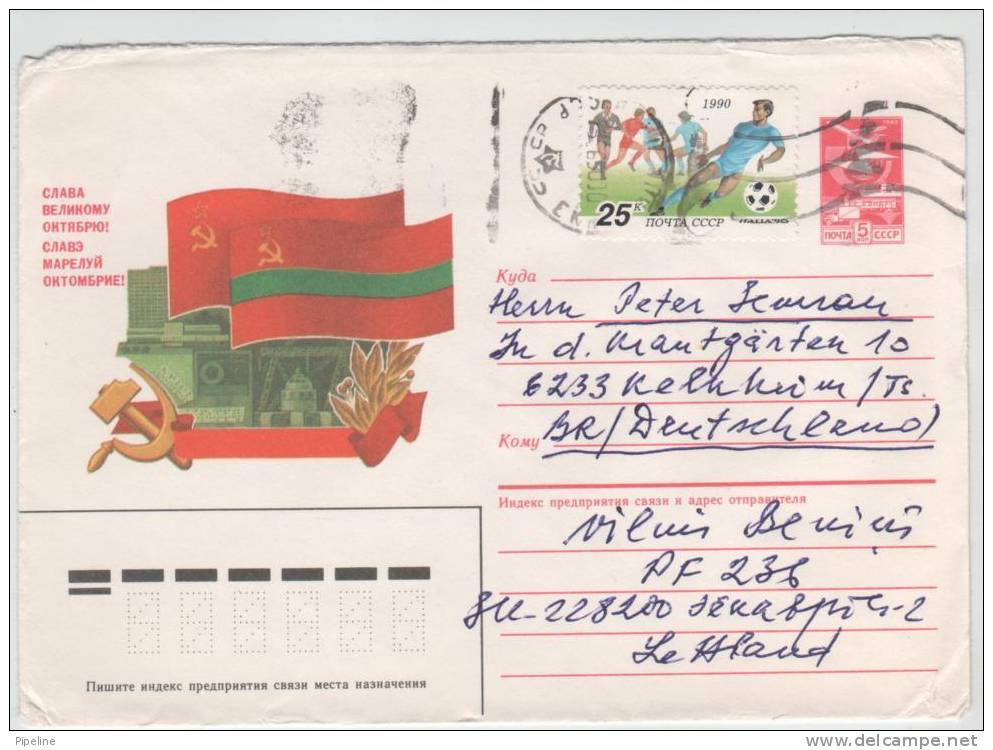 СЛАВА
ВЕЛИКОМУ
ОКТЯБРЮ!
СЛАВЭ
МАРЕЛУЙ
ОКТОМБРИЕ!
СССР
1990
25 К
ПОЧТА СССР
ITALIA'90
ПОЧТА 5 КОП СССР
Куда
Herrn Peter
In d. Krautgärten 10
6233 Kelkheim/Ts.
Кому
BR/Deutschland
Индекс предприятия связи и адрес отправителя
Vilnis
PF 236
SU-228200
Lettland
Пишите индекс предприятия связи места назначения
Pipeline
www.delcampe.net